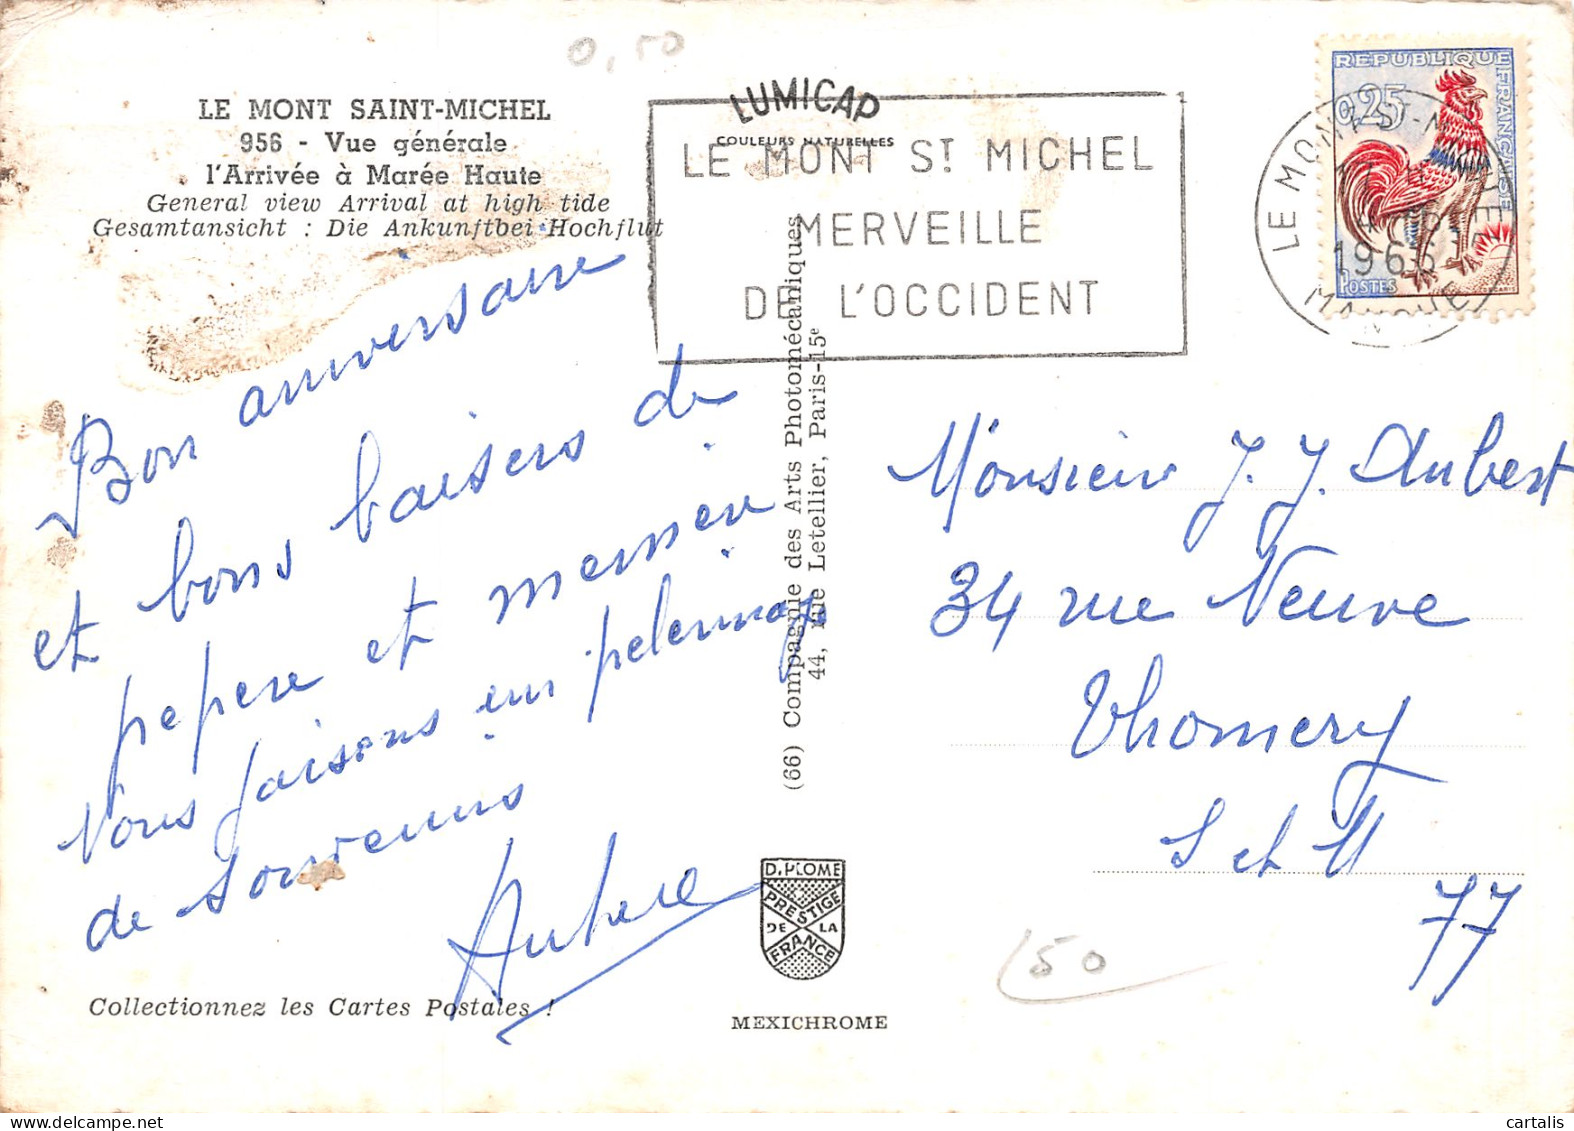 0,50
LE MONT SAINT-MICHEL
956 - Vue générale
l'Arrivée à Marée Haute
General view Arrival at high tide
Gesamtansicht : Die Ankunftbei Hochflut
LUMICAP
COULEURS NATURELLES
LE MONT ST MICHEL
MERVEILLE
DE L'OCCIDENT
REPUBLIQUE
FRANÇAISE
0,25
POSTES
LE MONT-ST-MICHEL
1966
MANCHE
Bon anniversaire
et bons baisers de
pepere et memere
Nous faisons un pelerinage
de souvenirs
(66) Compagnie des Arts Photomécaniques
44, rue Letellier, Paris-15e
Monsieur J. J. Aubert
34 rue Neuve
Thomery
S et M
77
50
D.PLOME
PRESTIGE
DE LA
FRANCE
Collectionnez les Cartes Postales !
MEXICHROME
cartalis
www.delcampe.net